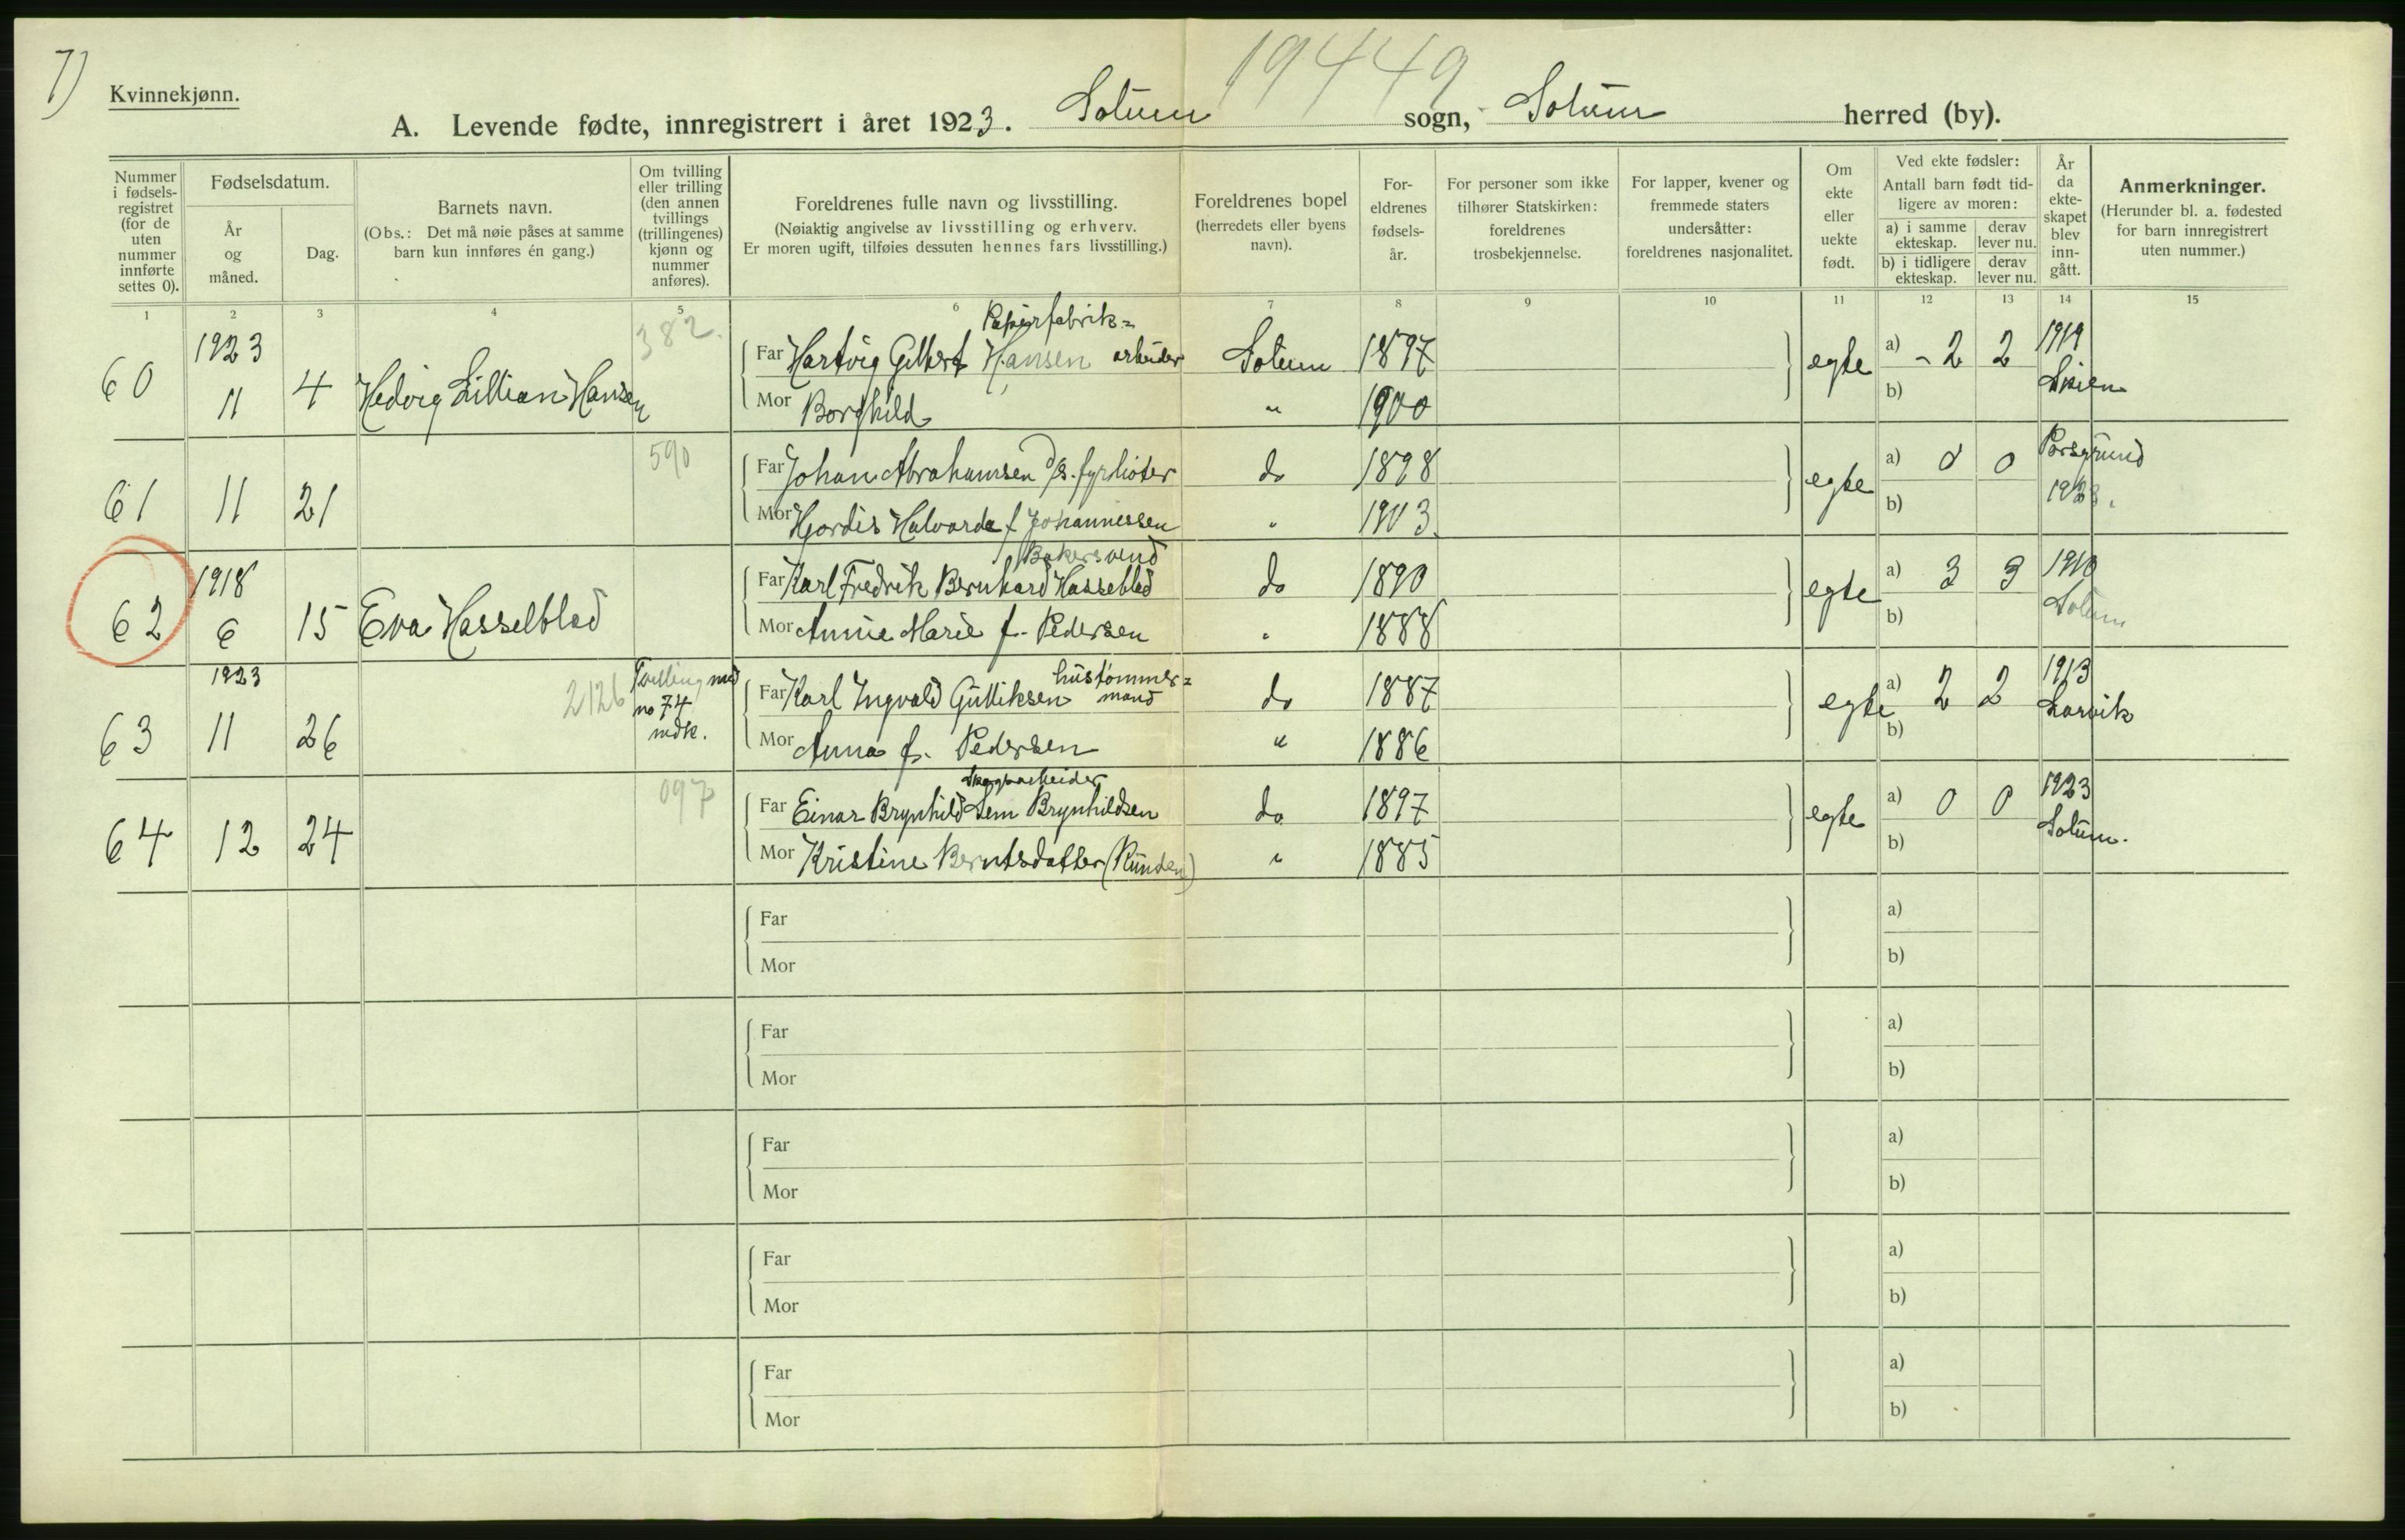 7)
19449
Kvinnekjønn.
A. Levende fødte, innregistrert i året 1923. Solum sogn, Solum herred (by).
Nummer i fødselsregistret (for de uten nummer innførte settes 0).
Fødselsdatum.
År og måned.
Dag.
Barnets navn.
(Obs.: Det må nøie påses at samme barn kun innføres én gang.)
Om tvilling eller trilling (den annen tvillings (trillingenes) kjønn og nummer anføres).
Foreldrenes fulle navn og livsstilling.
(Nøiaktig angivelse av livsstilling og erhverv.
Er moren ugift, tilføies dessuten hennes fars livsstilling.)
Foreldrenes bopel
(herredets eller byens navn).
Foreldrenes fødselsår.
For personer som ikke tilhører Statskirken: foreldrenes trosbekjennelse.
For lapper, kvener og fremmede staters undersåtter: foreldrenes nasjonalitet.
Om ekte eller uekte født.
Ved ekte fødsler: Antall barn født tidligere av moren:
a) i samme ekteskap. derav lever nu.
b) i tidligere ekteskap. derav lever nu.
År da ekteskapet blev inngått.
Anmerkninger.
(Herunder bl. a. fødested for barn innregistrert uten nummer.)
1 2 3 4 5 6 7 8 9 10 11 12 13 14 15
382.
Papirfabrik=
60 1923 11 4 Hedvig Lillian Hansen
Far Hartvig Gilbert Hansen arbeider Solum 1897 egte a) 2 2 1919
Mor Borghild " 1900 b) Skien
590
61 11 21
Far Johan Abrahamsen d/s. fyrbøter do 1898 egte a) 0 0 Porsgrund
Mor Hjordis Halvarda f Johannessen " 1903. b) 1923.
Bakersvend
62 1918 6 15 Eva Hasselblad
Far Karl Fredrik Bernhard Hasselblad do 1890 egte a) 3 3 1910
Mor Annie Marie f. Pedersen " 1888 b) Solum
2126 Tvilling med no 74 mdk.
hustømmer=
63 1923 11 26
Far Karl Ingvald Gulliksen mand do 1887 egte a) 2 2 1913
Mor Anna f. Pedersen " 1886 b) Larvik
097
Skogsarbeider
64 12 24
Far Einar Brynhild Sem Brynhildsen do 1897 egte a) 0 0 1923
Mor Kristine Berntsdatter (Runden) " 1885 b) Solum.
Far a)
Mor b)
Far a)
Mor b)
Far a)
Mor b)
Far a)
Mor b)
Far a)
Mor b)